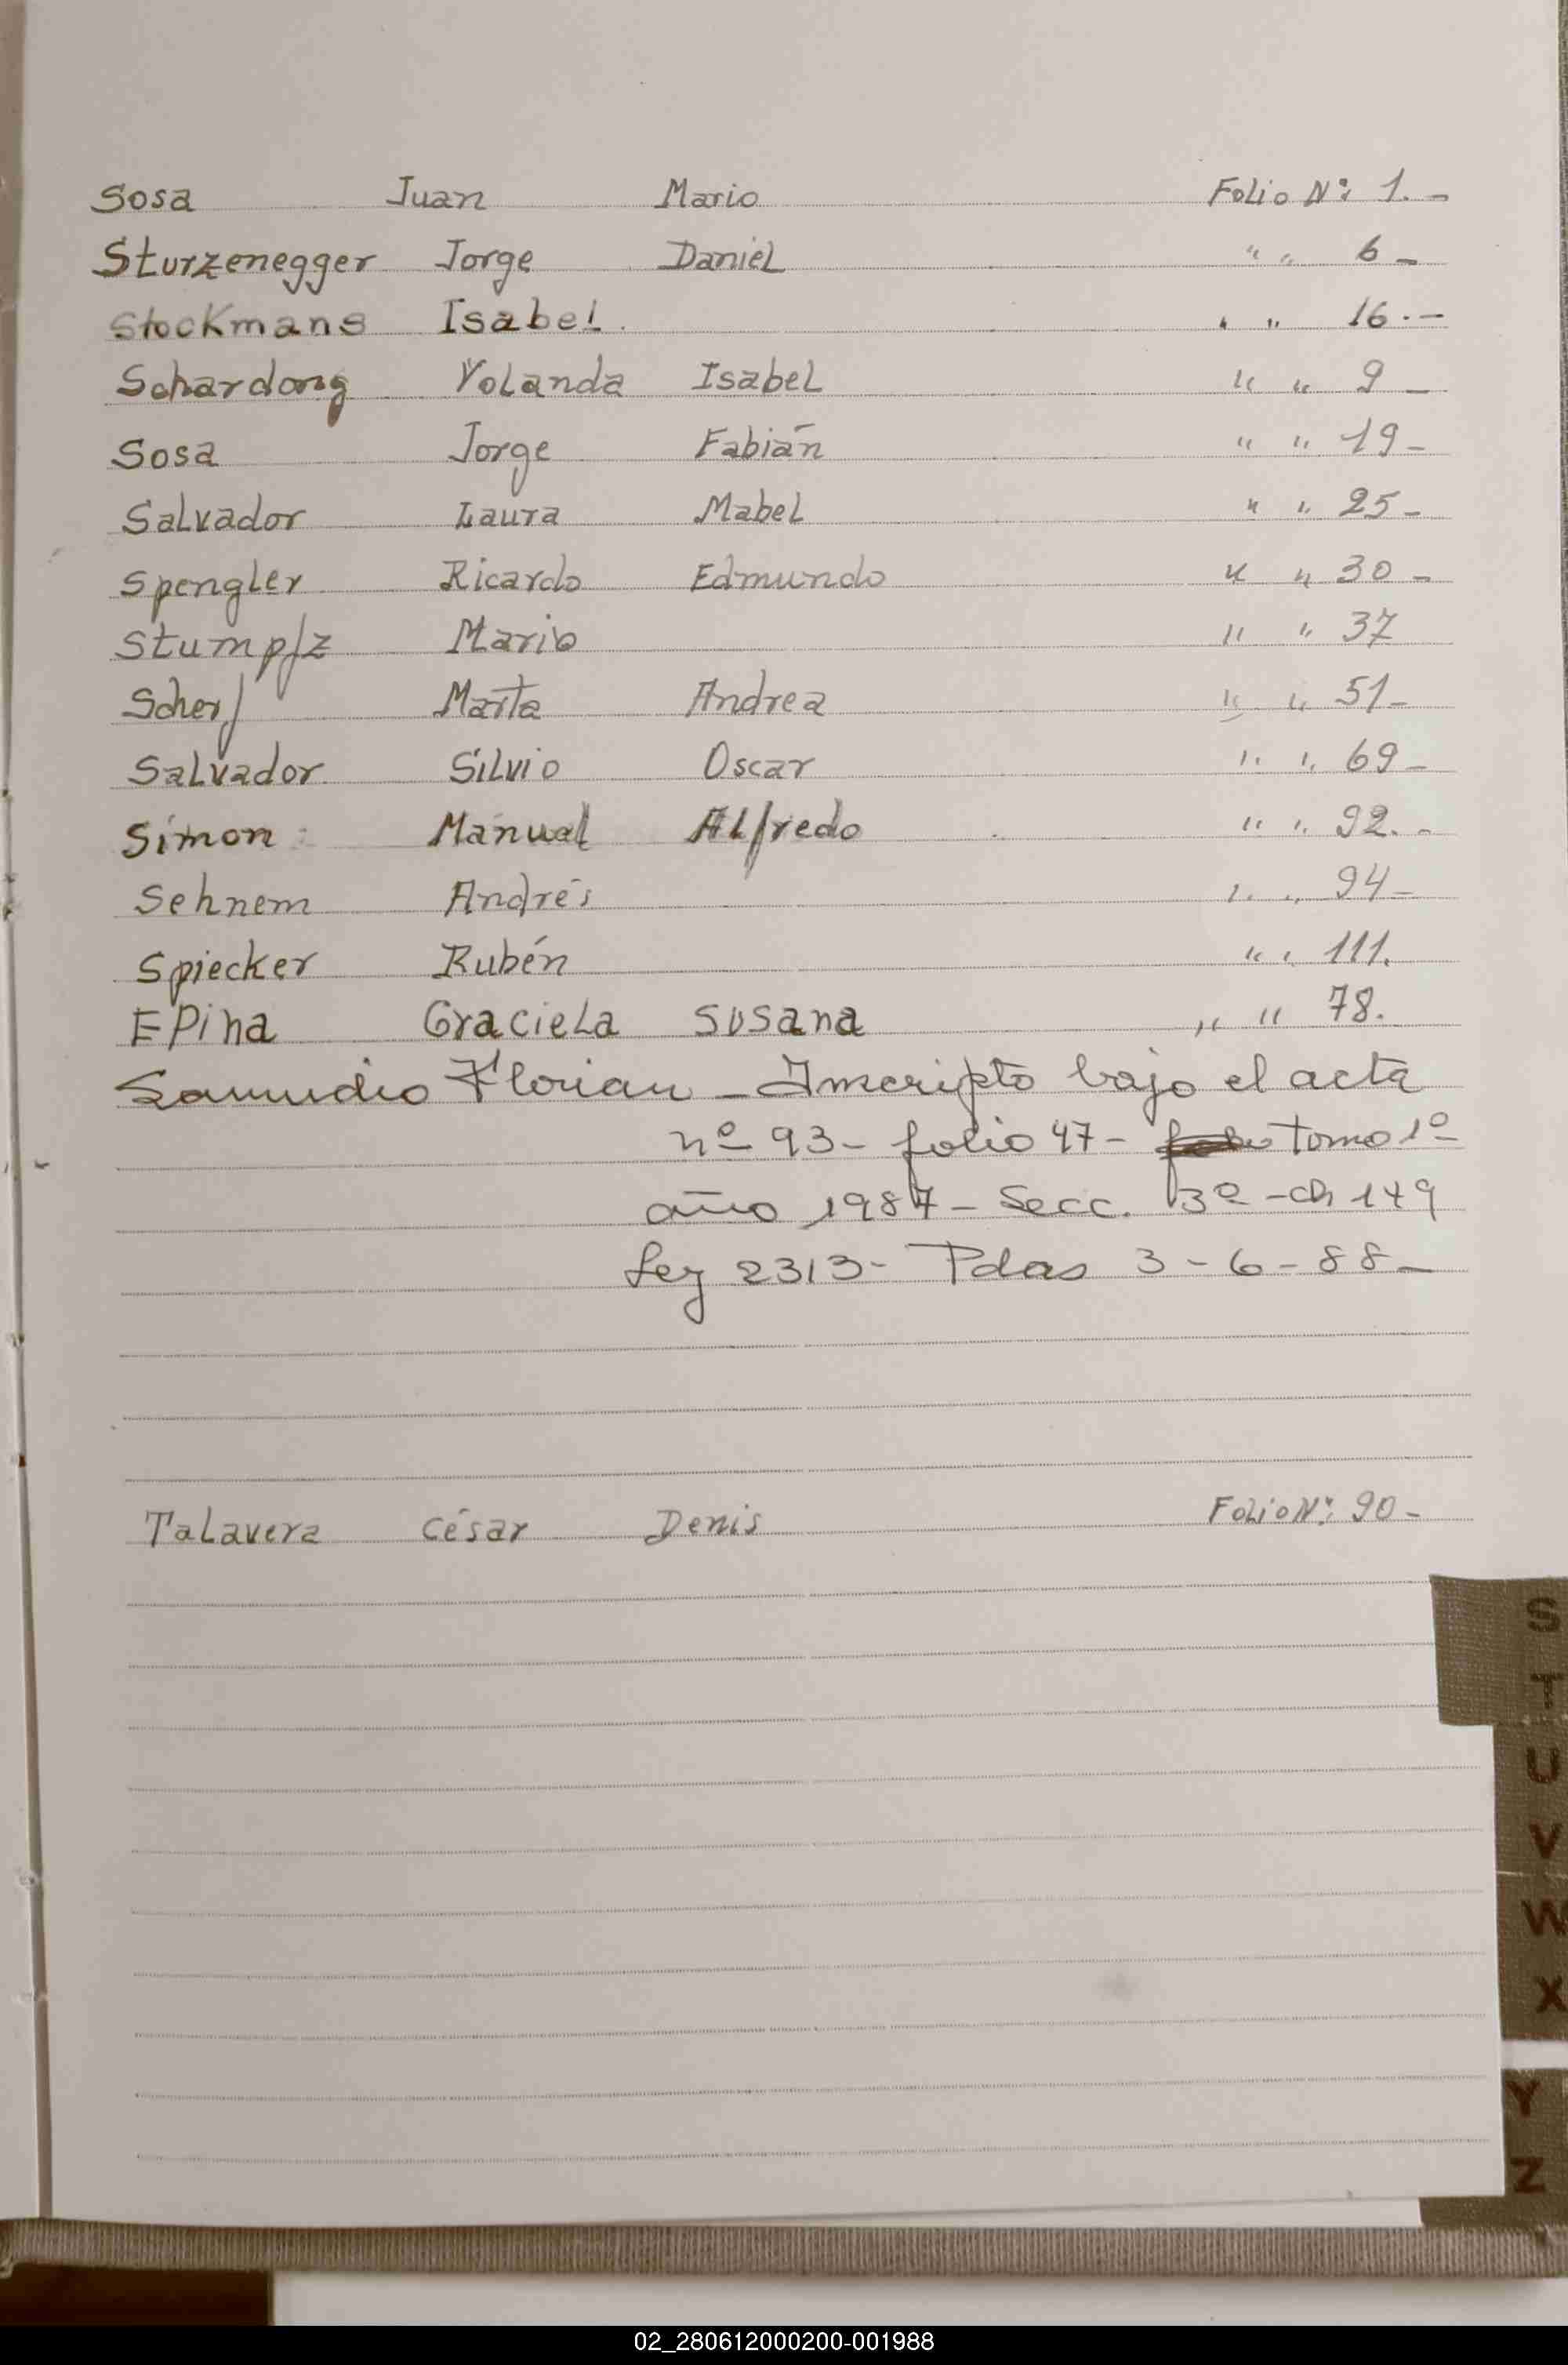 Sosa Juan Mario Folio Nº: 1.-
Sturzenegger Jorge Daniel " " 6-
Stockmans Isabel. " " 16.-
Schardong Yolanda Isabel " " 9-
Sosa Jorge Fabián " " 19-
Salvador Laura Mabel " " 25-
Spengler Ricardo Edmundo " " 30-
Stumpfz Mario " " 37
Scherf Marta Andrea " " 51-
Salvador Silvio Oscar " " 69-
Simon Manual Alfredo " " 92.-
Sehnem Andrés " " 94-
Spiecker Rubén " " 111.
EPina Graciela Susana " " 78.
Samudio Florian - Inscripto bajo el acta
nº 93- folio 47- tomo 1º
año 1987- Secc. 3º -ch 149
Ley 2313- Pdas 3-6-88-
Talavera César Denis Folio Nº: 90-
S
T
U
V
W
X
Y
Z
02_280612000200-001988